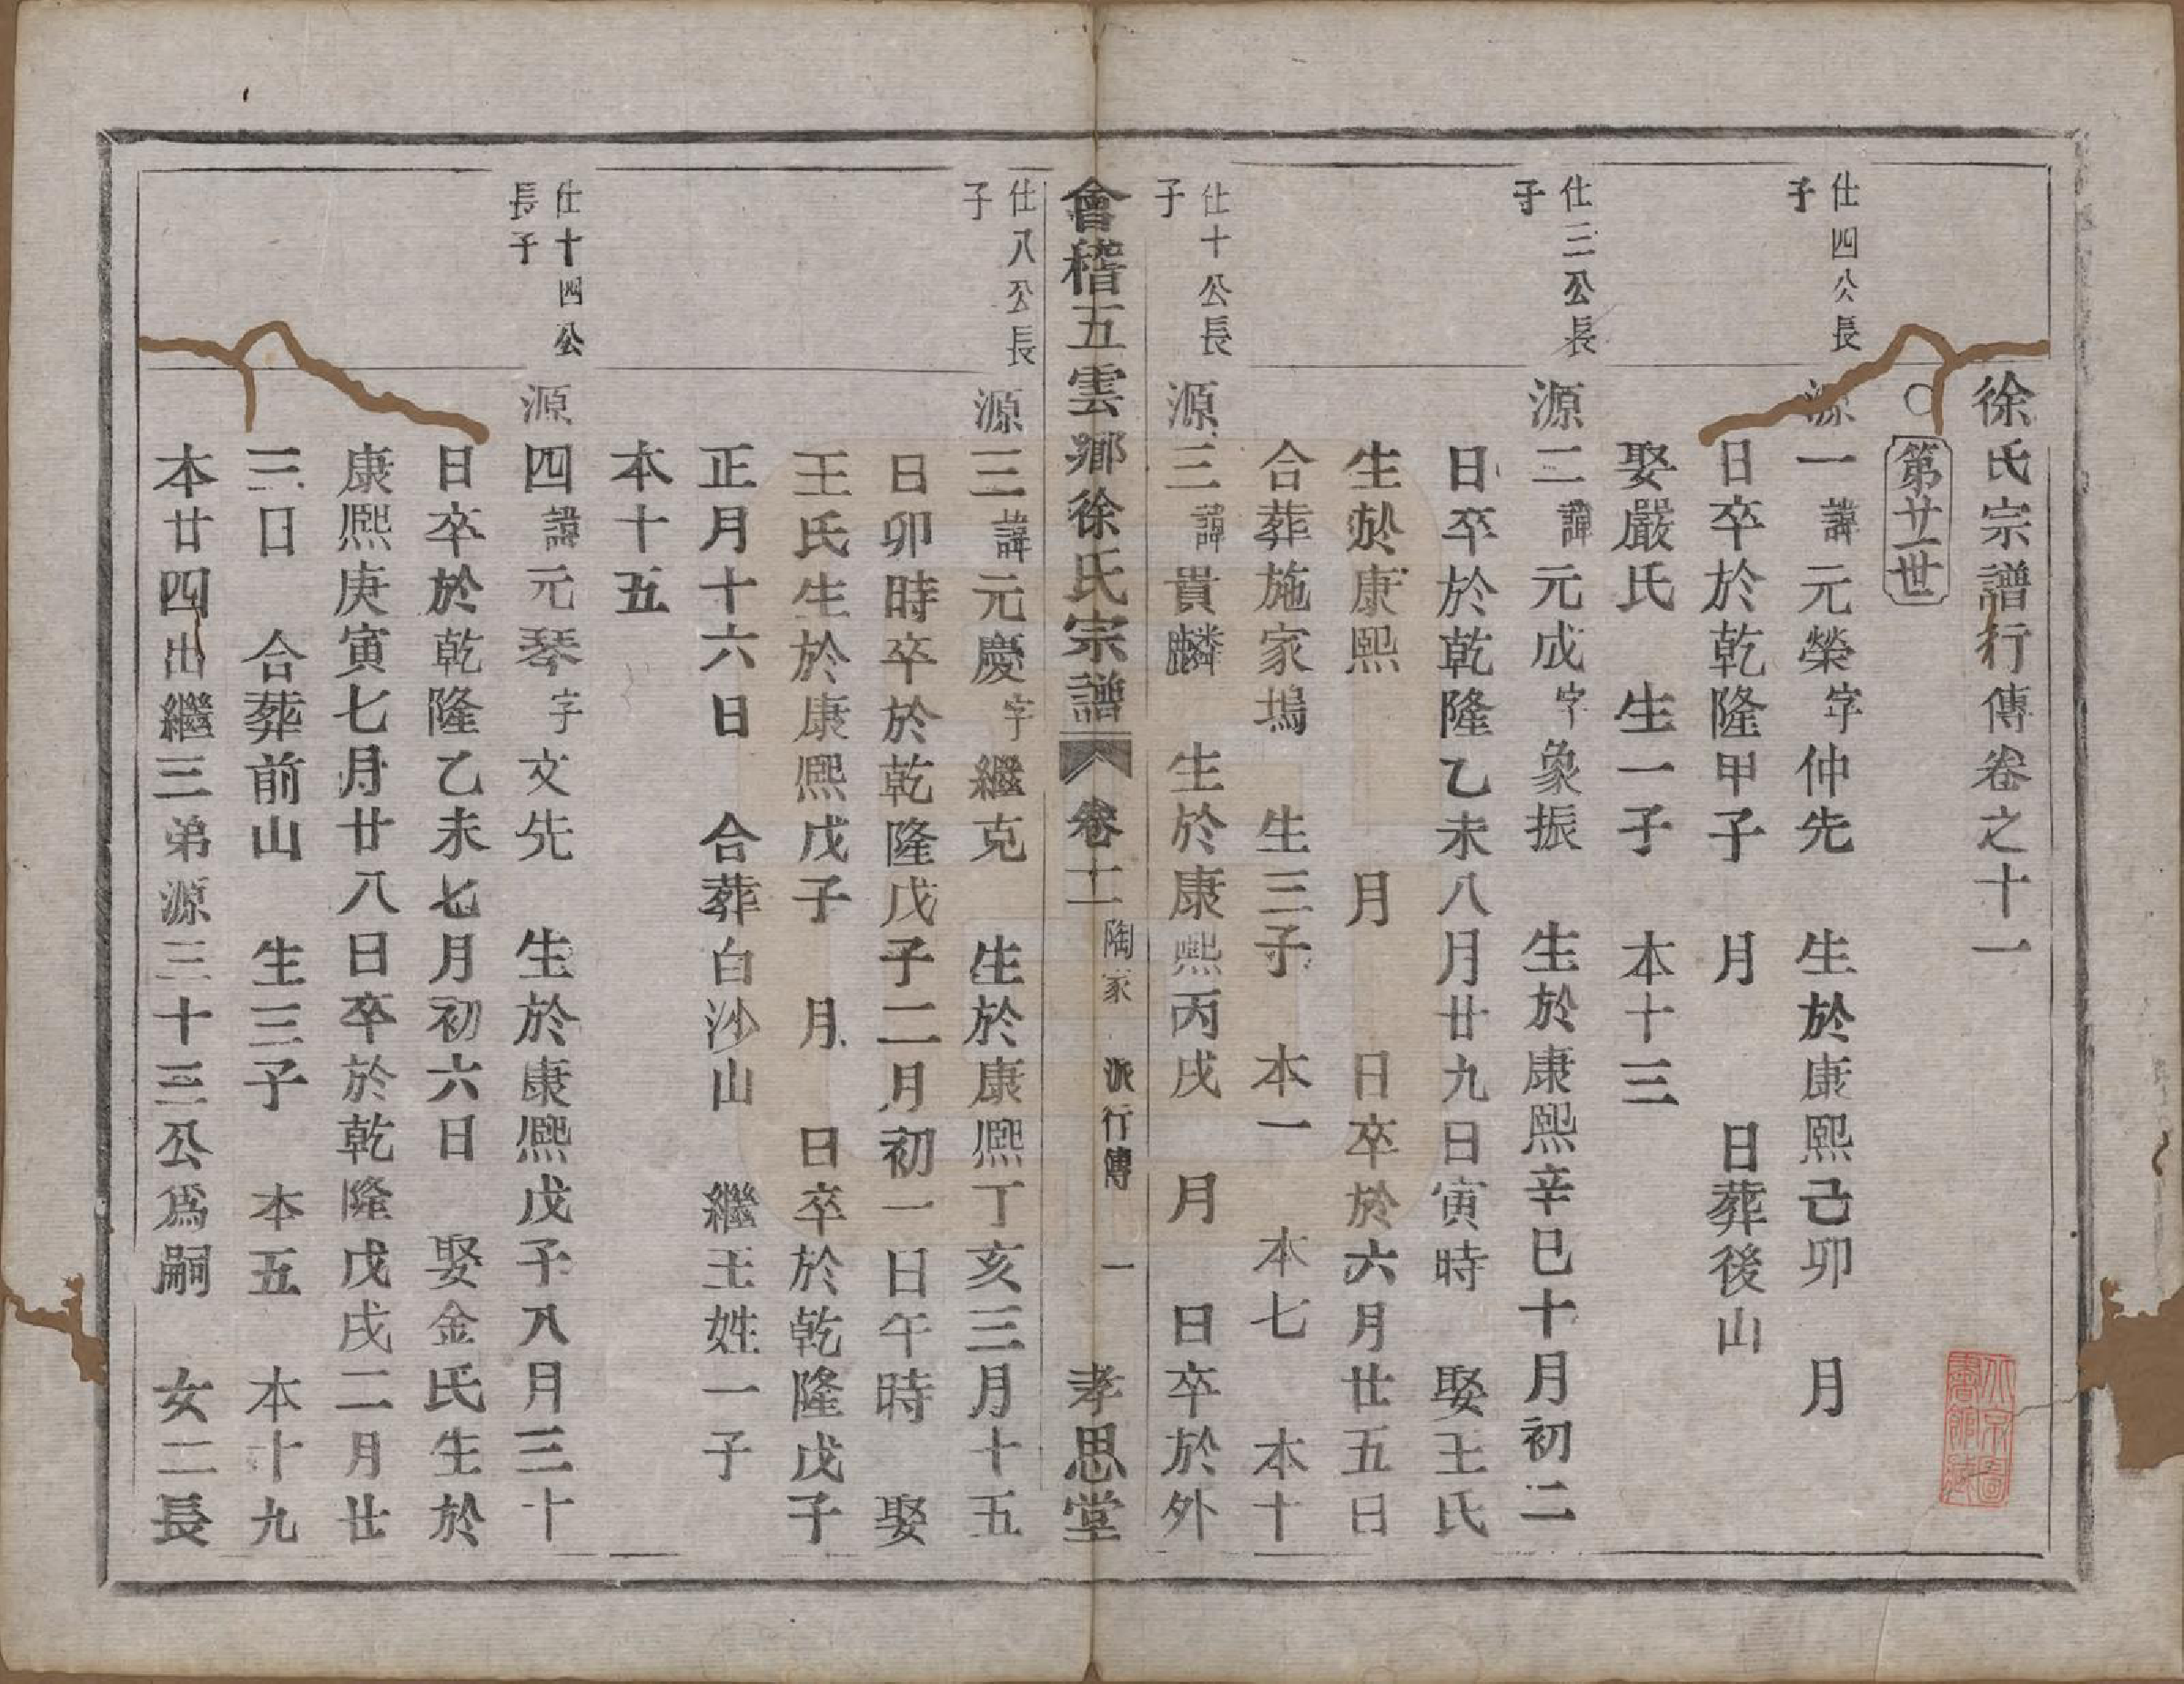 徐氏宗譜行傳卷之十一
○第廿一世
仕四公長子
源一諱元榮字仲先 生於康熙己卯 月
日卒於乾隆甲子 月 日葬後山
娶嚴氏 生一子 本十三
仕三公長子
源二諱元成字象振 生於康熙辛巳十月初二
日卒於乾隆乙未八月廿九日寅時 娶王氏
生於康熙 月 日卒於六月廿五日
合葬施家塢 生三子 本一 本七 本十
仕十公長子
源三諱貴麟 生於康熙丙戌 月 日卒於外
會稽五雲鄉徐氏宗譜 卷十一 陶家 派行傳 一 孝思堂
仕八公長子
源三諱元慶字繼克 生於康熙丁亥三月十五
日卯時卒於乾隆戊子二月初一日午時 娶
王氏生於康熙戊子 月 日卒於乾隆戊子
正月十六日 合葬白沙山 繼王姓一子
本十五
仕十四公長子
源四諱元琴字文先 生於康熙戊子八月三十
日卒於乾隆乙未七月初六日 娶金氏生於
康熙庚寅七月廿八日卒於乾隆戊戌二月廿
三日 合葬前山 生三子 本五 本十九
本廿四出繼三弟源三十三公爲嗣 女二長